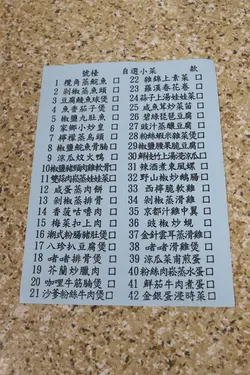 號檯 自選小菜 款
1 欖角蒸鯇魚
2 剁椒蒸魚頭
3 豆腐鯪魚球煲
4 魚香茄子煲
5 椒鹽九肚魚
6 家鄉小炒皇
7 檸檬蒸烏頭
8 椒鹽鯇魚骨腩
9 涼瓜炆火鴨
10 椒鹽豬頸肉
12 咸蛋蒸肉餅
13 剁椒蒸排骨
14 香菠咕嚕肉
15 梅菜扣上肉
16 潮式粉腸豬肚煲
17 八珍扒豆腐煲
18 啫啫排骨煲
19 芥蘭炒臘肉
20 咖喱牛筋腩煲
21 沙爹粉絲牛肉煲
22 雜錦上素菜
23 羅漢春花卷
24 蒜子上湯娃娃菜
25 咸魚茸炒菜苗
26 碧綠琵琶豆腐
27 豉汁蒸釀豆腐
28 粉絲蝦米雜菜煲
29 椒鹽脆豆腐
30 鮮枝竹上湯浸涼瓜
31 辣酒煮東風螺
32 野山椒炒鴨腸
33 西檸脆軟雞
34 剁椒蒸滑雞
35 京都汁雞中翼
36 豉椒炒蜆
37 金針雲耳蒸滑雞
38 啫啫滑雞煲
39 涼瓜菜甫煎蛋
40 粉絲肉崧蒸水蛋
41 鮮茄牛肉煮蛋
42 金銀蛋浸時菜